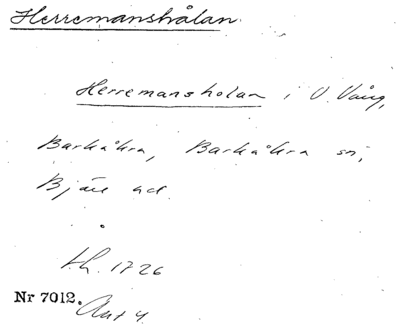 Herremanshålan.
Herremansholan i V. Vång,
Barkåkra, Barkåkra sn,
Bjäre hd.
th. 1726
Nr 7012. Akt 4